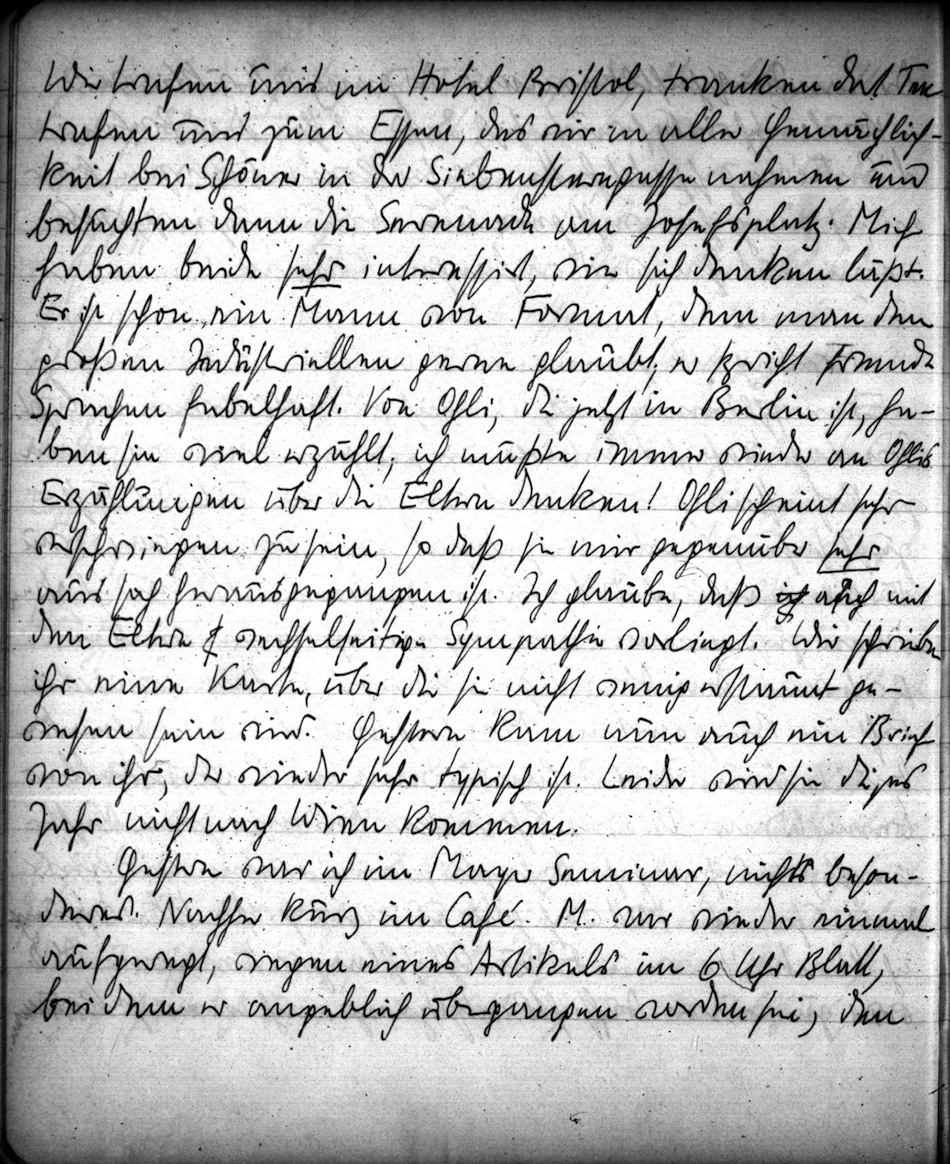 Wir trafen uns im Hotel Bristol, tranken dort Tee
trafen uns zum Essen, das wir in aller Gemächlich-
keit bei Schöner in der Siebensterngasse nahmen und
besuchten dann die Serenade am Josefsplatz. Mich
haben beide sehr interessiert, wie sich denken läßt.
Er ist schon ein Mann von Format, dem man den
großen Industriellen gerne glaubt; er spricht fremde
Sprachen fabelhaft. Von Ohli, die jetzt in Berlin ist, ha-
ben sie viel erzählt, ich mußte immer wieder an Ohlis
Erzählungen über die Eltern denken! Ohli scheint sehr
verschwiegen zu sein, so daß sie mir gegenüber sehr
aus sich herausgegangen ist. Ich glaube, daß auch mit
den Eltern wechselseitige Sympathie vorliegt. Wir schrieben
ihr eine Karte, über die sie nicht wenig erstaunt ge-
wesen sein wird. Gestern kam nun auch ein Brief
von ihr, der wieder sehr typisch ist. Leider wird sie dieses
Jahr nicht nach Wien kommen.
Gestern war ich im Mayer Seminar, nichts beson-
deres. Nachher kurz im Café. M. war wieder einmal
aufgeregt, wegen eines Artikels im 6 Uhr Blatt,
bei dem er angeblich übergangen worden sei, den